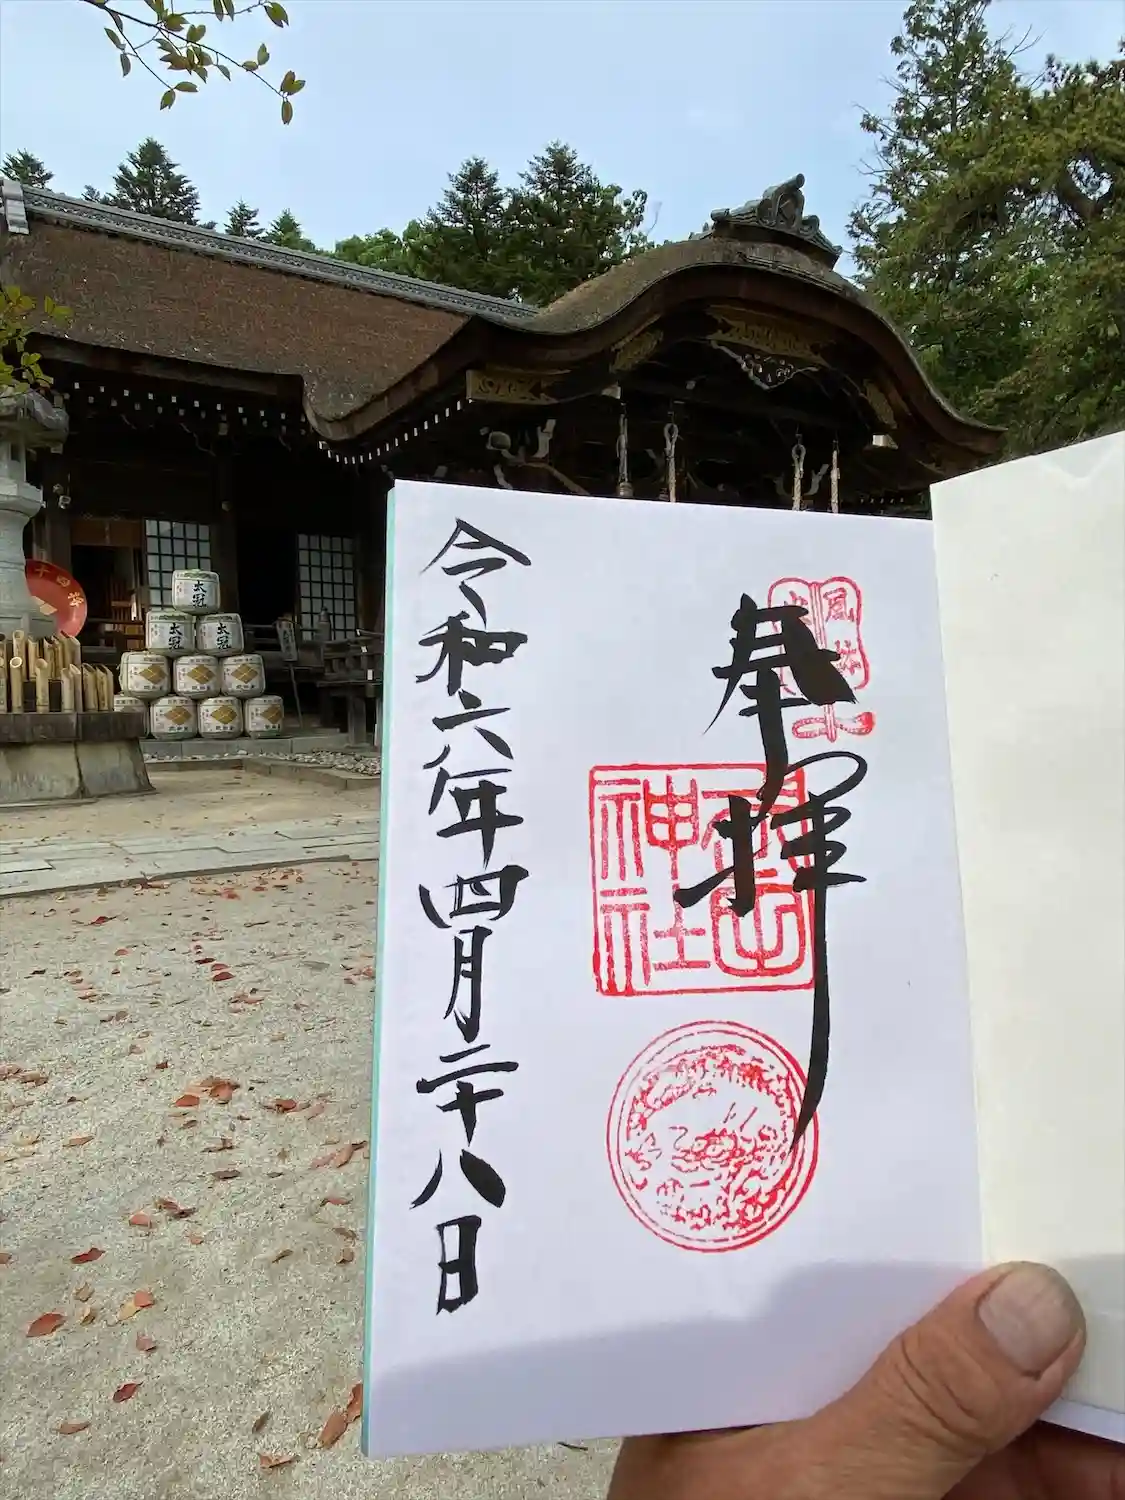 奉拝
風林
武田
神社
令和六年四月二十八日
太冠
太冠
太冠